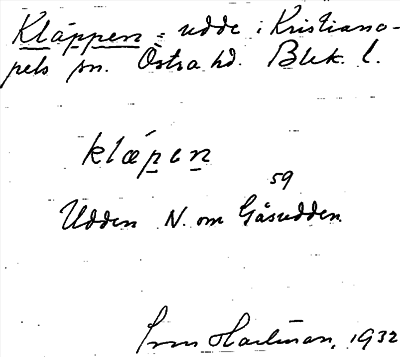 Kläppen = udde i Kristiano-
pels sn. Östra hd. Blek. l.
klæ´pen
59
Udden N. om Gåsudden
Hartman, 1932